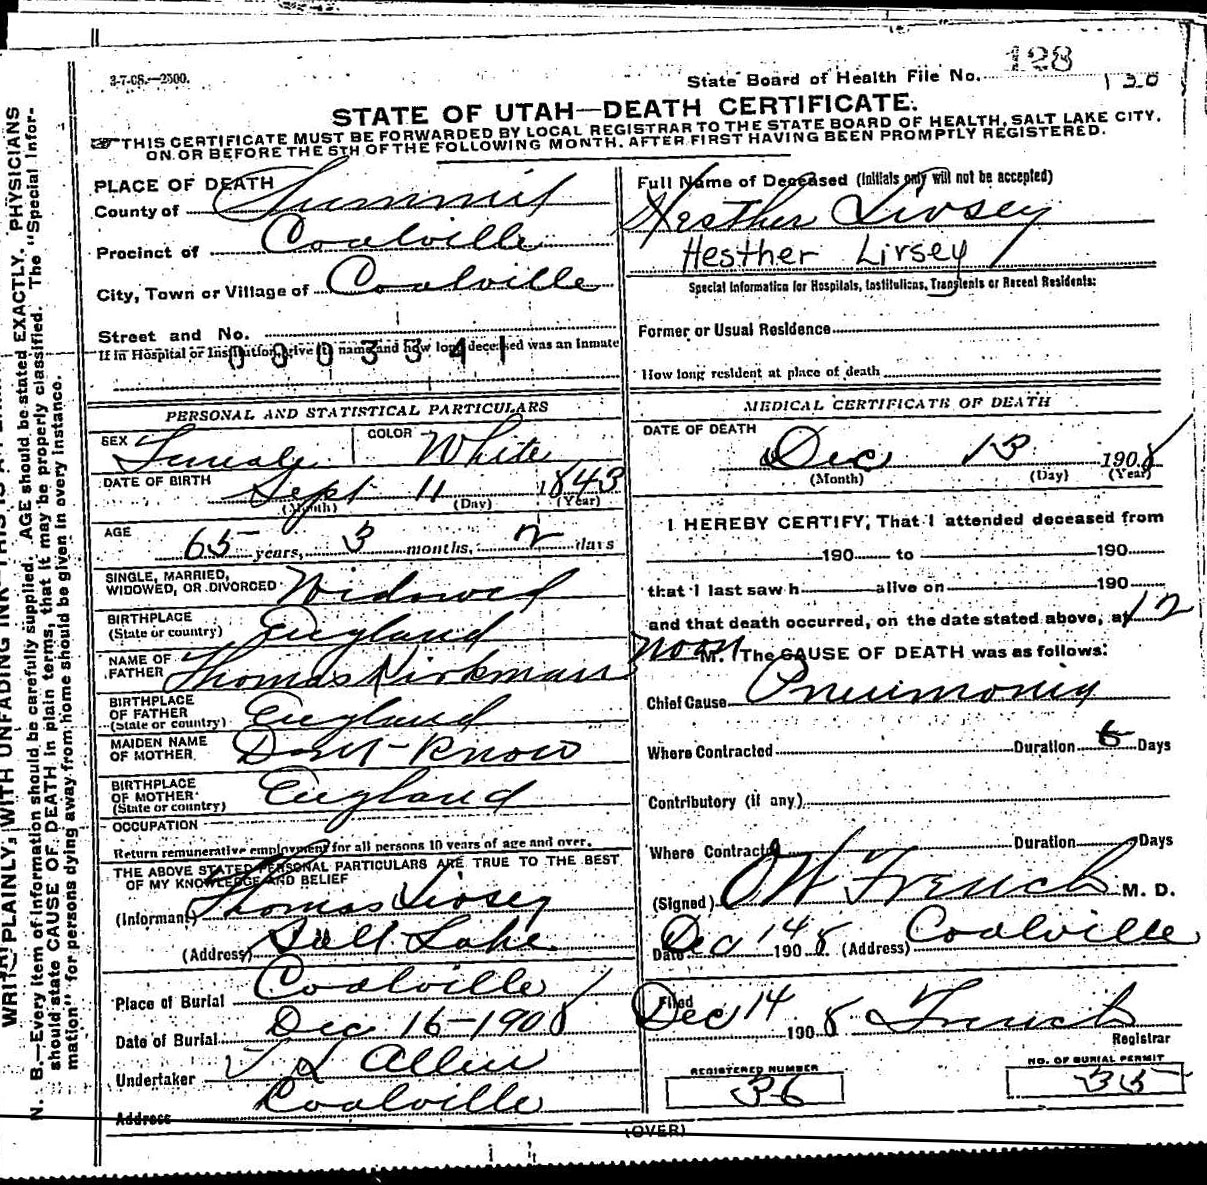 3-7-08.—2500.
State Board of Health File No. 128
130
STATE OF UTAH—DEATH CERTIFICATE.
THIS CERTIFICATE MUST BE FORWARDED BY LOCAL REGISTRAR TO THE STATE BOARD OF HEALTH, SALT LAKE CITY,
ON OR BEFORE THE 5TH OF THE FOLLOWING MONTH, AFTER FIRST HAVING BEEN PROMPTLY REGISTERED.
PLACE OF DEATH
County of Summit
Precinct of Coalville
City, Town or Village of Coalville
Street and No.
If in Hospital or Institution, give its name and how long deceased was an inmate
0303341
PERSONAL AND STATISTICAL PARTICULARS
SEX Female COLOR White
DATE OF BIRTH Sept 11 1843
(Month) (Day) (Year)
AGE 65 years, 3 months, 2 days
SINGLE, MARRIED,
WIDOWED, OR DIVORCED Widowed
BIRTHPLACE
(State or country) England
NAME OF
FATHER Thomas Kirkman
BIRTHPLACE
OF FATHER
(State or country) England
MAIDEN NAME
OF MOTHER Dont-Know
BIRTHPLACE
OF MOTHER
(State or country) England
OCCUPATION
Return remunerative employment for all persons 10 years of age and over.
THE ABOVE STATED PERSONAL PARTICULARS ARE TRUE TO THE BEST
OF MY KNOWLEDGE AND BELIEF
(Informant) Thomas Livsey
(Address) Salt Lake
Place of Burial Coalville
Date of Burial Dec 16-1908
Undertaker T L Allen
Address Coalville
Full Name of Deceased (Initials only will not be accepted)
Hesther Livsey
Hesther Lirsey
Special Information for Hospitals, Institutions, Transients or Recent Residents:
Former or Usual Residence
How long resident at place of death
MEDICAL CERTIFICATE OF DEATH
DATE OF DEATH
Dec 13 1908
(Month) (Day) (Year)
I HEREBY CERTIFY, That I attended deceased from
190 to 190
that I last saw h alive on 190
and that death occurred, on the date stated above, at 12
noon M. The CAUSE OF DEATH was as follows:
Chief Cause Pneumonia
Where Contracted Duration 6 Days
Contributory (if any)
Where Contracted Duration Days
(Signed) O W French M. D.
Date Dec 14 1908 (Address) Coalville
Filed Dec 14 1908 French
Registrar
REGISTERED NUMBER
36
NO. OF BURIAL PERMIT
35
(OVER)
WRITE PLAINLY, WITH UNFADING INK—THIS IS A
N. B.—Every item of information should be carefully supplied. AGE should be stated EXACTLY. PHYSICIANS
should state CAUSE OF DEATH in plain terms, that it may be properly classified. The "Special Infor-
mation" for persons dying away from home should be given in every instance.